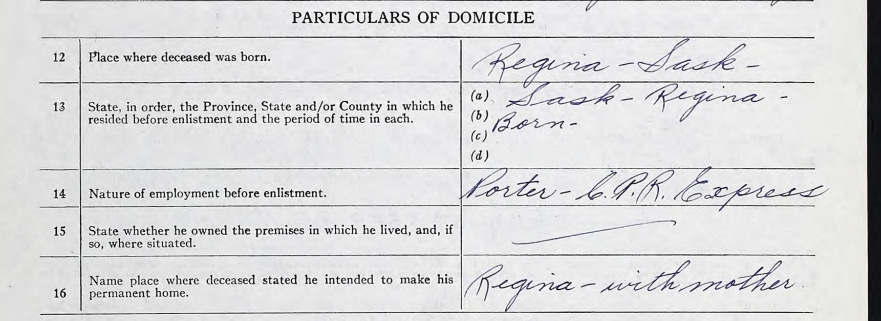 PARTICULARS OF DOMICILE
12 Place where deceased was born. Regina - Sask -
13 State, in order, the Province, State and/or County in which he resided before enlistment and the period of time in each.
(a) Sask - Regina -
(b) Born -
(c)
(d)
14 Nature of employment before enlistment. Porter - C.P.R. Express
15 State whether he owned the premises in which he lived, and, if so, where situated. —
16 Name place where deceased stated he intended to make his permanent home. Regina - with mother.